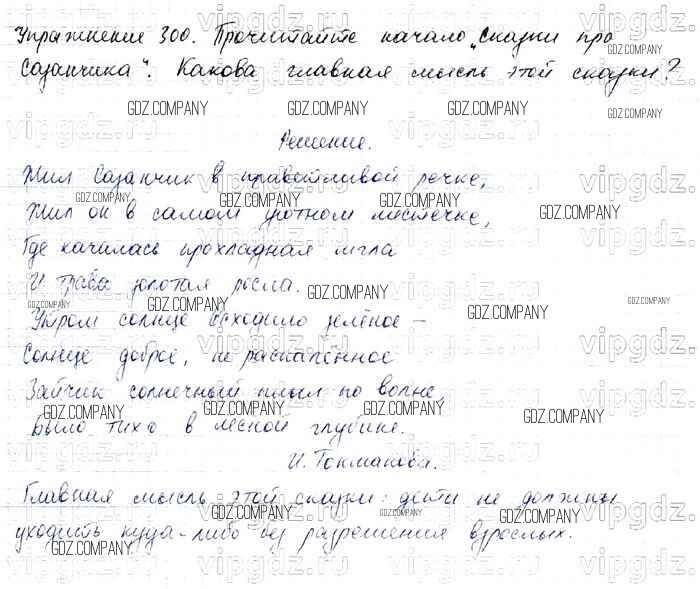 Упражнение 300. Прочитайте начало „Сказки про
Сазанчика“. Какова главная мысль этой сказки?
Решение.
Жил Сазанчик в приветливой речке,
Жил он в самом уютном местечке,
Где качалась прохладная мгла
И трава золотая росла.
Утром солнце всходило зелёное –
Солнце доброе, не распалённое
Зайчик солнечный плыл по волне,
Было тихо в лесной глубине.
И. Токмакова.
Главная мысль этой сказки: дети не должны
уходить куда-либо без разрешения взрослых.
GDZ.COMPANY
vipgdz.ru